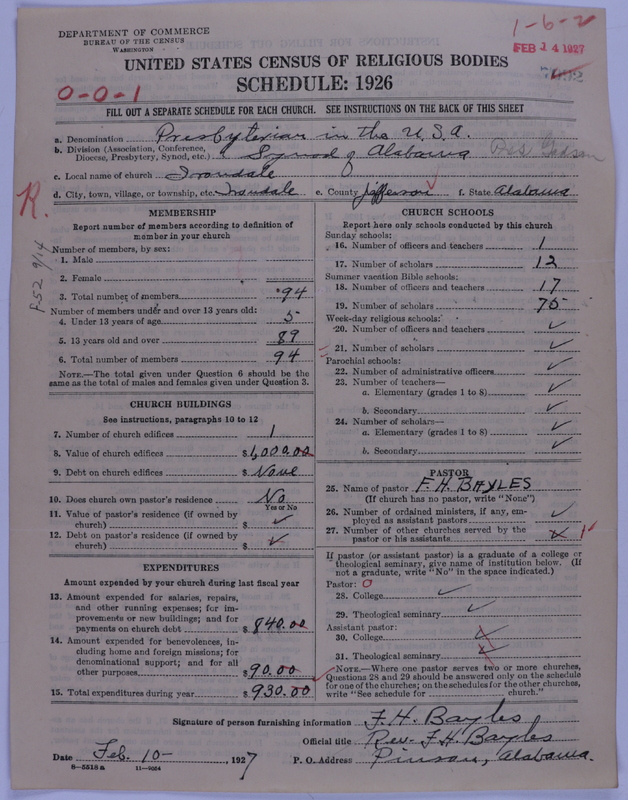 DEPARTMENT OF COMMERCE
BUREAU OF THE CENSUS
WASHINGTON
1-6-2
FEB 14 1927
UNITED STATES CENSUS OF RELIGIOUS BODIES
SCHEDULE: 1926
0-0-1
FILL OUT A SEPARATE SCHEDULE FOR EACH CHURCH. SEE INSTRUCTIONS ON THE BACK OF THIS SHEET
a. Denomination Presbyterian in the U.S.A.
b. Division (Association, Conference, Diocese, Presbytery, Synod, etc.) Synod of Alabama
c. Local name of church Irondale
d. City, town, village, or township, etc. Irondale e. County Jefferson f. State Alabama
R.
F-52 9/14
MEMBERSHIP
Report number of members according to definition of
member in your church
Number of members, by sex:
1. Male
2. Female
3. Total number of members 94
Number of members under and over 13 years old:
4. Under 13 years of age 5
5. 13 years old and over 89
6. Total number of members 94
NOTE.—The total given under Question 6 should be
same as the total of males and females given under Question 3.
CHURCH BUILDINGS
See instructions, paragraphs 10 to 12
7. Number of church edifices 1
8. Value of church edifices $ 6,000.00
9. Debt on church edifices $ None
10. Does church own pastor's residence No
Yes or No
11. Value of pastor's residence (if owned by
church) $ ✓
12. Debt on pastor's residence (if owned by
church) $ ✓
EXPENDITURES
Amount expended by your church during last fiscal year
13. Amount expended for salaries, repairs,
and other running expenses; for im-
provements or new buildings; and for
payments on church debt $ 840.00
14. Amount expended for benevolences, in-
cluding home and foreign missions; for
denominational support; and for all
other purposes $ 90.00
15. Total expenditures during year $ 930.00
CHURCH SCHOOLS
Report here only schools conducted by this church
Sunday schools:
16. Number of officers and teachers 1
17. Number of scholars 12
Summer vacation Bible schools:
18. Number of officers and teachers 17
19. Number of scholars 75
Week-day religious schools:
20. Number of officers and teachers ✓
21. Number of scholars ✓
Parochial schools:
22. Number of administrative officers ✓
23. Number of teachers—
a. Elementary (grades 1 to 8) ✓
b. Secondary ✓
24. Number of scholars—
a. Elementary (grades 1 to 8) ✓
b. Secondary ✓
PASTOR
25. Name of pastor F. H. BAYLES
(If church has no pastor, write "None")
26. Number of ordained ministers, if any, em-
ployed as assistant pastors ✓
27. Number of other churches served by the
pastor or his assistants 1
If pastor (or assistant pastor) is a graduate of a college or
theological seminary, give name of institution below. (If
not a graduate, write "No" in the space indicated.)
Pastor: 0
28. College ✓
29. Theological seminary ✓
Assistant pastor:
30. College
31. Theological seminary
NOTE.—Where one pastor serves two or more churches,
Questions 28 and 29 should be answered only on the schedule
for one of the churches; on the schedules for the other churches,
write "See schedule for church."
Signature of person furnishing information F. H. Bayles
Official title Rev. F. H. Bayles
Date Feb. 10- , 1927 P. O. Address Pinson, Alabama.
8—5518a 11—9054